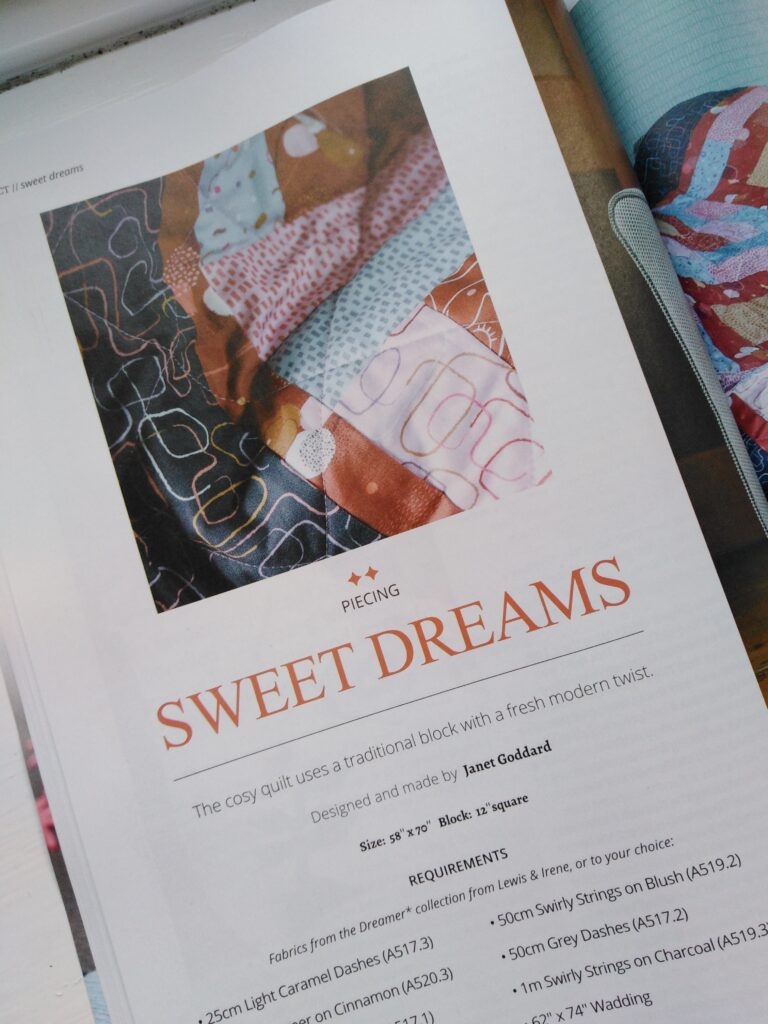 // sweet dreams
PIECING
SWEET DREAMS
The cosy quilt uses a traditional block with a fresh modern twist.
Designed and made by Janet Goddard
Size: 58" x 70" Block: 12" square
REQUIREMENTS
Fabrics from the Dreamer* collection from Lewis & Irene, or to your choice:
• 25cm Light Caramel Dashes (A517.3)
on Cinnamon (A520.3)
• 50cm Swirly Strings on Blush (A519.2)
• 50cm Grey Dashes (A517.2)
• 1m Swirly Strings on Charcoal (A519.3)
62" x 74" Wadding